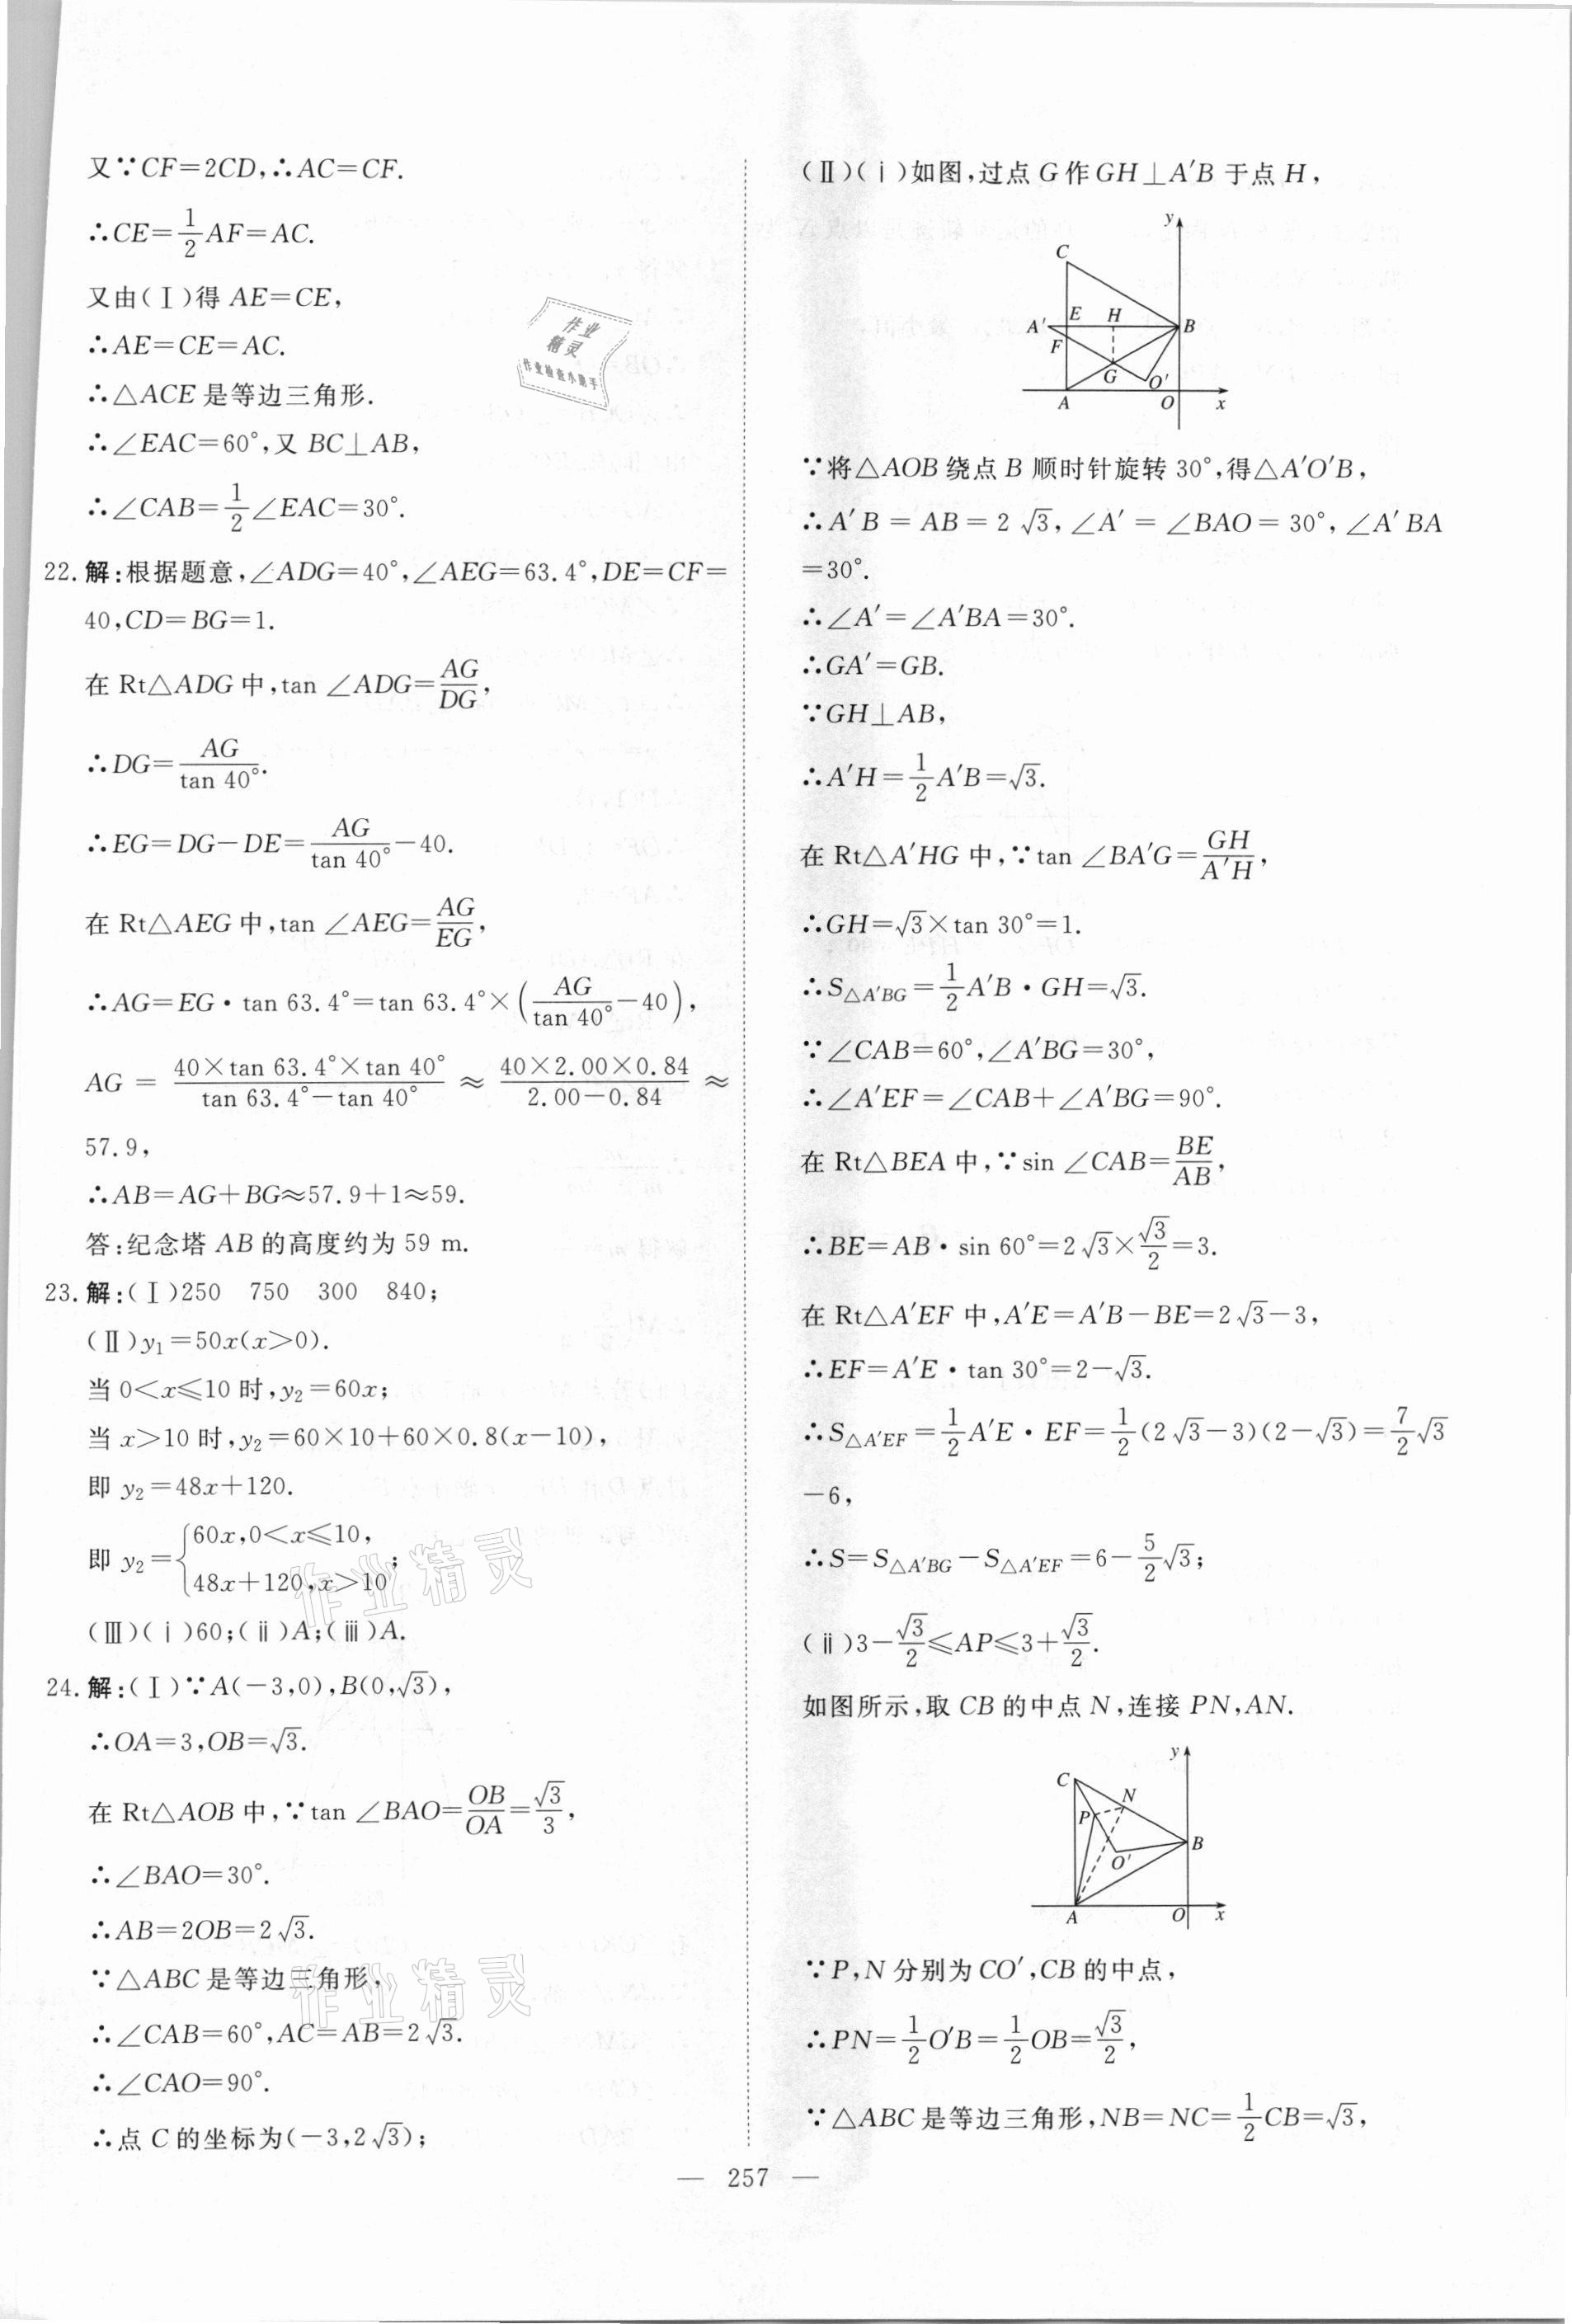 又∵CF=2CD,∴AC=CF.
∴CE=1/2AF=AC.
又由(Ⅰ)得 AE=CE,
∴AE=CE=AC.
∴△ACE 是等边三角形.
∴∠EAC=60°,又 BC⊥AB,
∴∠CAB=1/2∠EAC=30°.
22. 解:根据题意,∠ADG=40°,∠AEG=63.4°,DE=CF=
40,CD=BG=1.
在 Rt△ADG 中,tan ∠ADG=AG/DG,
∴DG=AG/tan 40°.
∴EG=DG-DE=AG/tan 40°-40.
在 Rt△AEG 中,tan ∠AEG=AG/EG,
∴AG=EG·tan 63.4°=tan 63.4°×(AG/tan 40°-40),
AG = (40×tan 63.4°×tan 40°)/(tan 63.4°-tan 40°) ≈ (40×2.00×0.84)/(2.00-0.84) ≈
57.9,
∴AB=AG+BG≈57.9+1≈59.
答:纪念塔 AB 的高度约为 59 m.
23. 解:(Ⅰ)250 750 300 840;
(Ⅱ)y₁=50x(x>0).
当 0<x≤10 时,y₂=60x;
当 x>10 时,y₂=60×10+60×0.8(x-10),
即 y₂=48x+120.
即 y₂={60x,0<x≤10,
48x+120,x>10;
(Ⅲ)(ⅰ)60;(ⅱ)A;(ⅲ)A.
24. 解:(Ⅰ)∵A(-3,0),B(0,√3),
∴OA=3,OB=√3.
在 Rt△AOB 中,∵tan ∠BAO=OB/OA=√3/3,
∴∠BAO=30°.
∴AB=2OB=2√3.
∵△ABC 是等边三角形,
∴∠CAB=60°,AC=AB=2√3.
∴∠CAO=90°.
∴点 C 的坐标为(-3,2√3);
(Ⅱ)(ⅰ)如图,过点 G 作 GH⊥A′B 于点 H,
y
C
A′ E H B
F
G O′
A O x
∵将△AOB 绕点 B 顺时针旋转 30°,得△A′O′B,
∴A′B=AB=2√3,∠A′=∠BAO=30°,∠A′BA
=30°.
∴∠A′=∠A′BA=30°.
∴GA′=GB.
∵GH⊥AB,
∴A′H=1/2A′B=√3.
在 Rt△A′HG 中,∵tan ∠BA′G=GH/A′H,
∴GH=√3×tan 30°=1.
∴S△A′BG=1/2A′B·GH=√3.
∵∠CAB=60°,∠A′BG=30°,
∴∠A′EF=∠CAB+∠A′BG=90°.
在 Rt△BEA 中,∵sin ∠CAB=BE/AB,
∴BE=AB·sin 60°=2√3×√3/2=3.
在 Rt△A′EF 中,A′E=A′B-BE=2√3-3,
∴EF=A′E·tan 30°=2-√3.
∴S△A′EF=1/2A′E·EF=1/2(2√3-3)(2-√3)=7/2√3
-6,
∴S=S△A′BG-S△A′EF=6-5/2√3;
(ⅱ)3-√3/2≤AP≤3+√3/2.
如图所示,取 CB 的中点 N,连接 PN,AN.
y
C
N
P
B
O′
A O x
∵P,N 分别为 CO′,CB 的中点,
∴PN=1/2O′B=1/2OB=√3/2,
∵△ABC 是等边三角形,NB=NC=1/2CB=√3,
— 257 —
作业
精灵
作业检查小助手
作业精灵
作业精灵